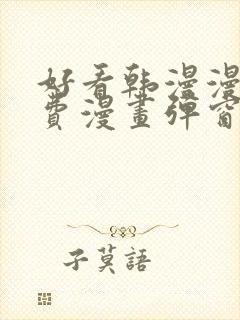 好看韩漫漫
費漫畫彈窗
子莫語